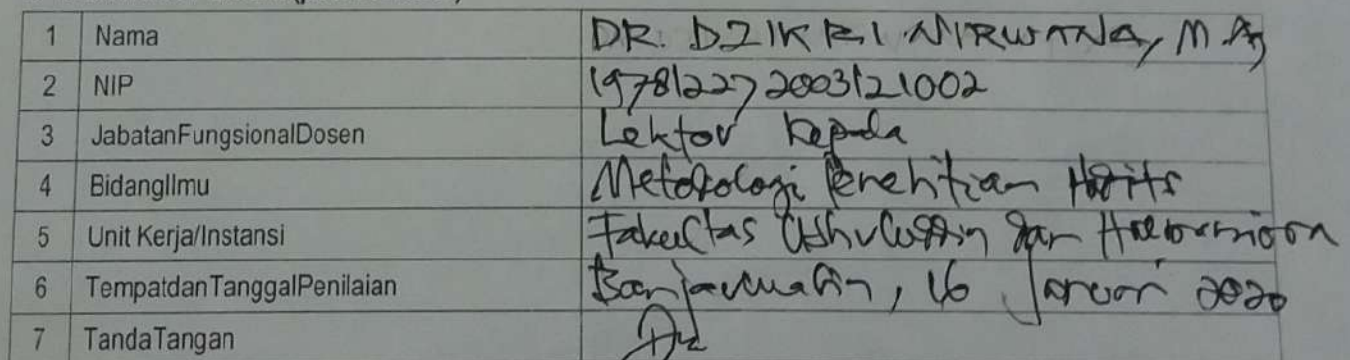 1 Nama DR. DZIKRI NIRWANA, M.Ag
2 NIP 197812272003121002
3 JabatanFungsionalDosen Lektor Kepala
4 BidangIlmu Metodologi Penelitian Hadits
5 Unit Kerja/Instansi Fakultas Ushuluddin dan Humaniora
6 TempatdanTanggalPenilaian Banjarmasin, 16 Januari 2020
7 TandaTangan